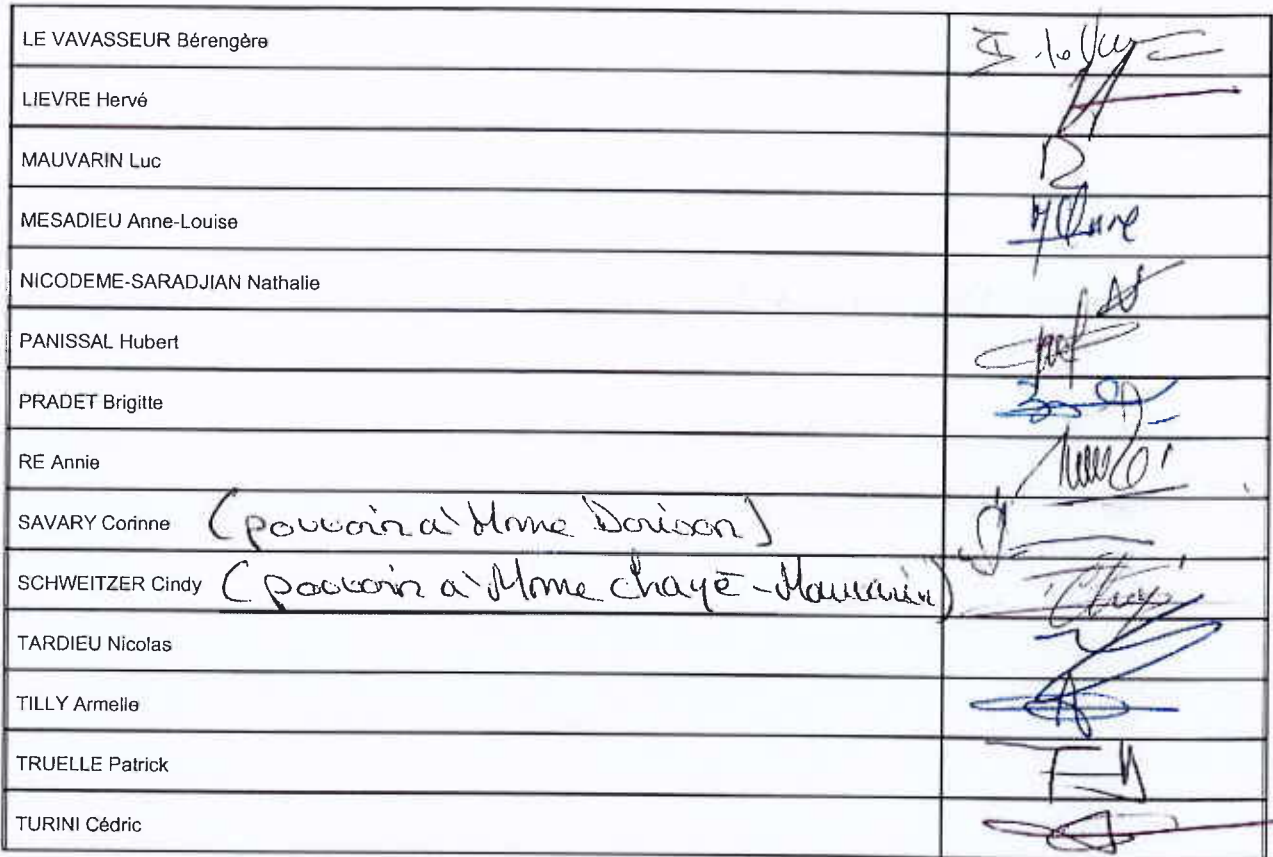 LE VAVASSEUR Bérengère
LIEVRE Hervé
MAUVARIN Luc
MESADIEU Anne-Louise
NICODEME-SARADJIAN Nathalie
PANISSAL Hubert
PRADET Brigitte
RE Annie
SAVARY Corinne (pouvoir à Mme Dorison)
SCHWEITZER Cindy (pouvoir à Mme Chayé-Mauvarin)
TARDIEU Nicolas
TILLY Armelle
TRUELLE Patrick
TURINI Cédric